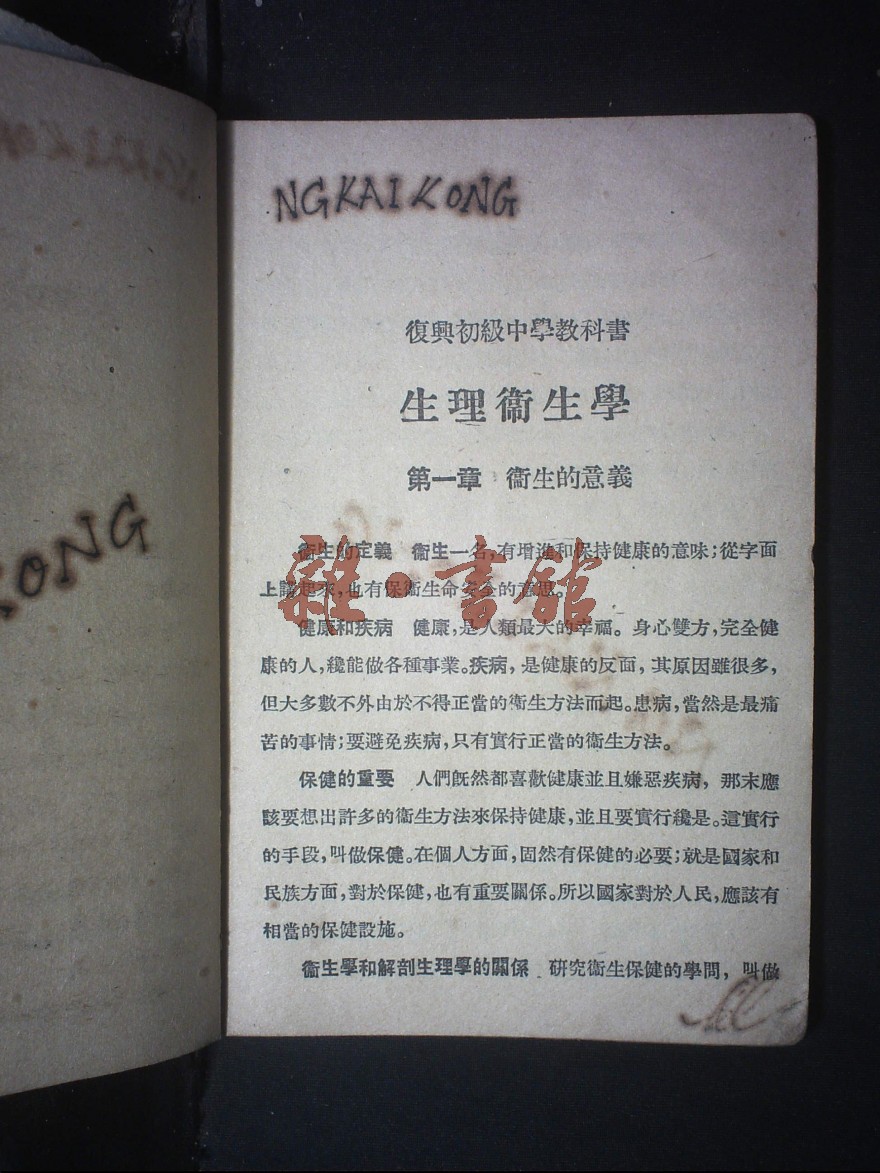 NG KAI KONG
KONG
復興初級中學教科書
生理衞生學
第一章 衞生的意義
衞生的定義 衞生一名,有增進和保持健康的意味;從字面
上講起來,也有保衞生命安全的意思。
健康和疾病 健康,是人類最大的幸福。身心雙方,完全健
康的人,纔能做各種事業。疾病,是健康的反面,其原因雖很多,
但大多數不外由於不得正當的衞生方法而起。患病,當然是最痛
苦的事情;要避免疾病,只有實行正當的衞生方法。
保健的重要 人們旣然都喜歡健康並且嫌惡疾病,那末應
該要想出許多的衞生方法來保持健康,並且要實行纔是。這實行
的手段,叫做保健。在個人方面,固然有保健的必要;就是國家和
民族方面,對於保健,也有重要關係。所以國家對於人民,應該有
相當的保健設施。
衞生學和解剖生理學的關係 研究衞生保健的學問,叫做
雜·書館